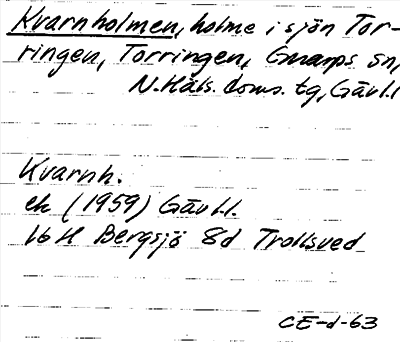 Kvarnholmen, holme i sjön Tor-
ringen, Torringen, Gnarps sn,
N. Häls. doms. tg, Gävl.l.
Kvarnh.
ek (1959) Gävl.l.
16 H Bergsjö 8d Trollsved
CE-d-63